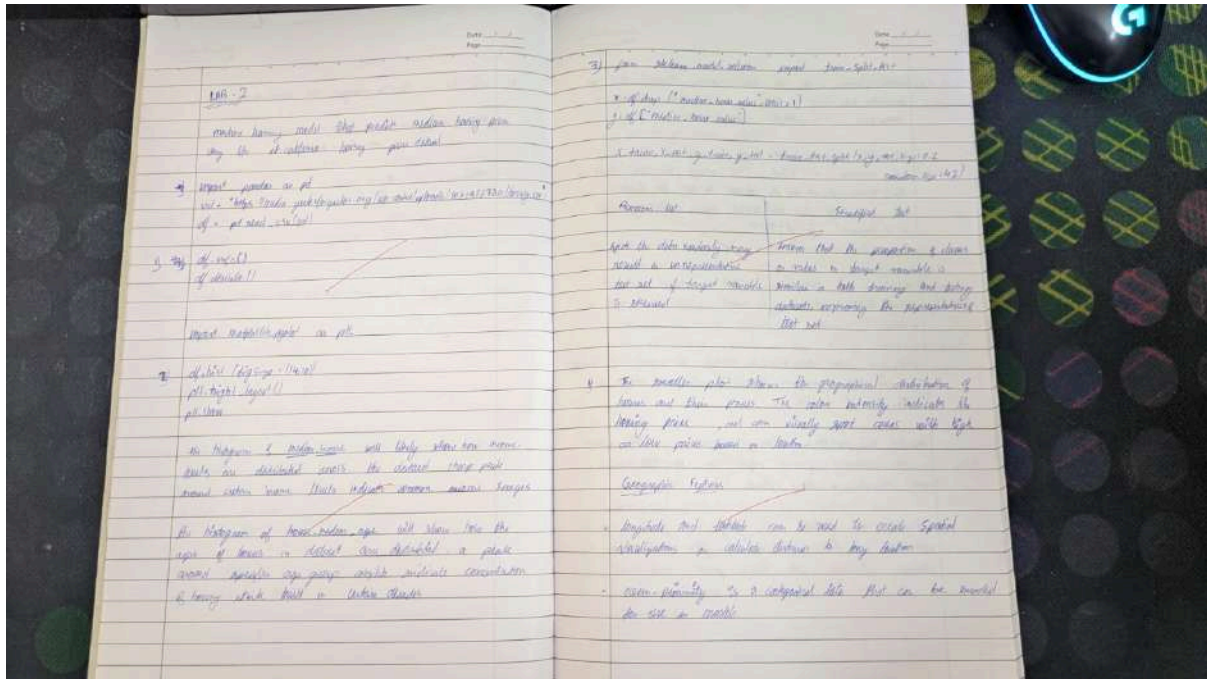 Date
Page
LAB - 2
median housing model that predict median housing price
using the california housing price dataset
import pandas as pd
df = pd.read_csv(url)
df.info()
df.describe()
import matplotlib.pyplot as plt
2 df.hist (figsize =
plt.tight_layout()
plt.show
The histogram of median income will likely show how income
levels are distributed across the dataset sharp peak
around certain income levels indicate common income ranges
the histogram of house median age will show how the
ages of houses in dataset are distributed a peak
around specific age groups might indicate concentration
of housing units built in certain decades
Date
Page
3) from sklearn.model_selection import train_split_test
x = df.drop ("median_house_value", axis = 1)
y = df ["median_house_value"]
Random test
Stratified test
Split the data randomly may
result in unrepresentative
test set if target variable
is skewed
Ensures that the proportion of classes
or values in target variable is
similar in both training and testing
datasets, the representative
test set
4 The scatter plot shows the geographical distribution of
houses and their prices The color intensity indicates the
housing prices, and can visually spot areas with high
or low prices based on location
Geographic Features
• longitude and latitude can be used to create Spatial
visualizations or calculate distance to key location
• ocean-proximity is a categorical data that can be encoded
for use in models